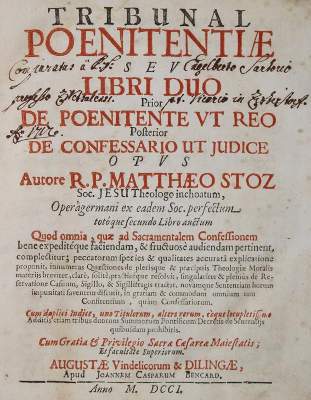 TRIBUNAL
POENITENTIÆ
SEU
LIBRI DUO
Prior
DE POENITENTE UT REO
Posterior
DE CONFESSARIO UT JUDICE
OPUS
Autore R. P. MATTHÆO STOZ
Soc. JESU Theologo inchoatum,
Operâ germani ex eadem Soc. perfectum
totóque secundo Libro auctum
Quod omnia, quæ ad Sacramentalem Confessionem
bene expeditéque faciendam, & fructuosè audiendam pertinent,
complectitur; peccatorum species & qualitates accuratâ explicatione
proponit, innumeras Quæstiones de plerisque & præcipuis Theologiæ Moralis
materiis breviter, clarè, solidè
servatione Casuum, Sigillo, & Sigillifragis tractat,
in gratiam & commodum omnium tam
Confitentium, quàm Confessariorum.
Cum duplici Indice, uno Titulorum, altero rerum, eóque locupletissimo
Additis etiam tribus
quibusdam prohibitis.
Cum Gratia & Privilegio Sacræ Cæsareæ Majestatis,
Et facultate Superiorum.
AUGUSTÆ Vindelicorum & DILINGÆ,
Apud JOANNEM CASPARUM BENCARD.
Anno M. DCCI.